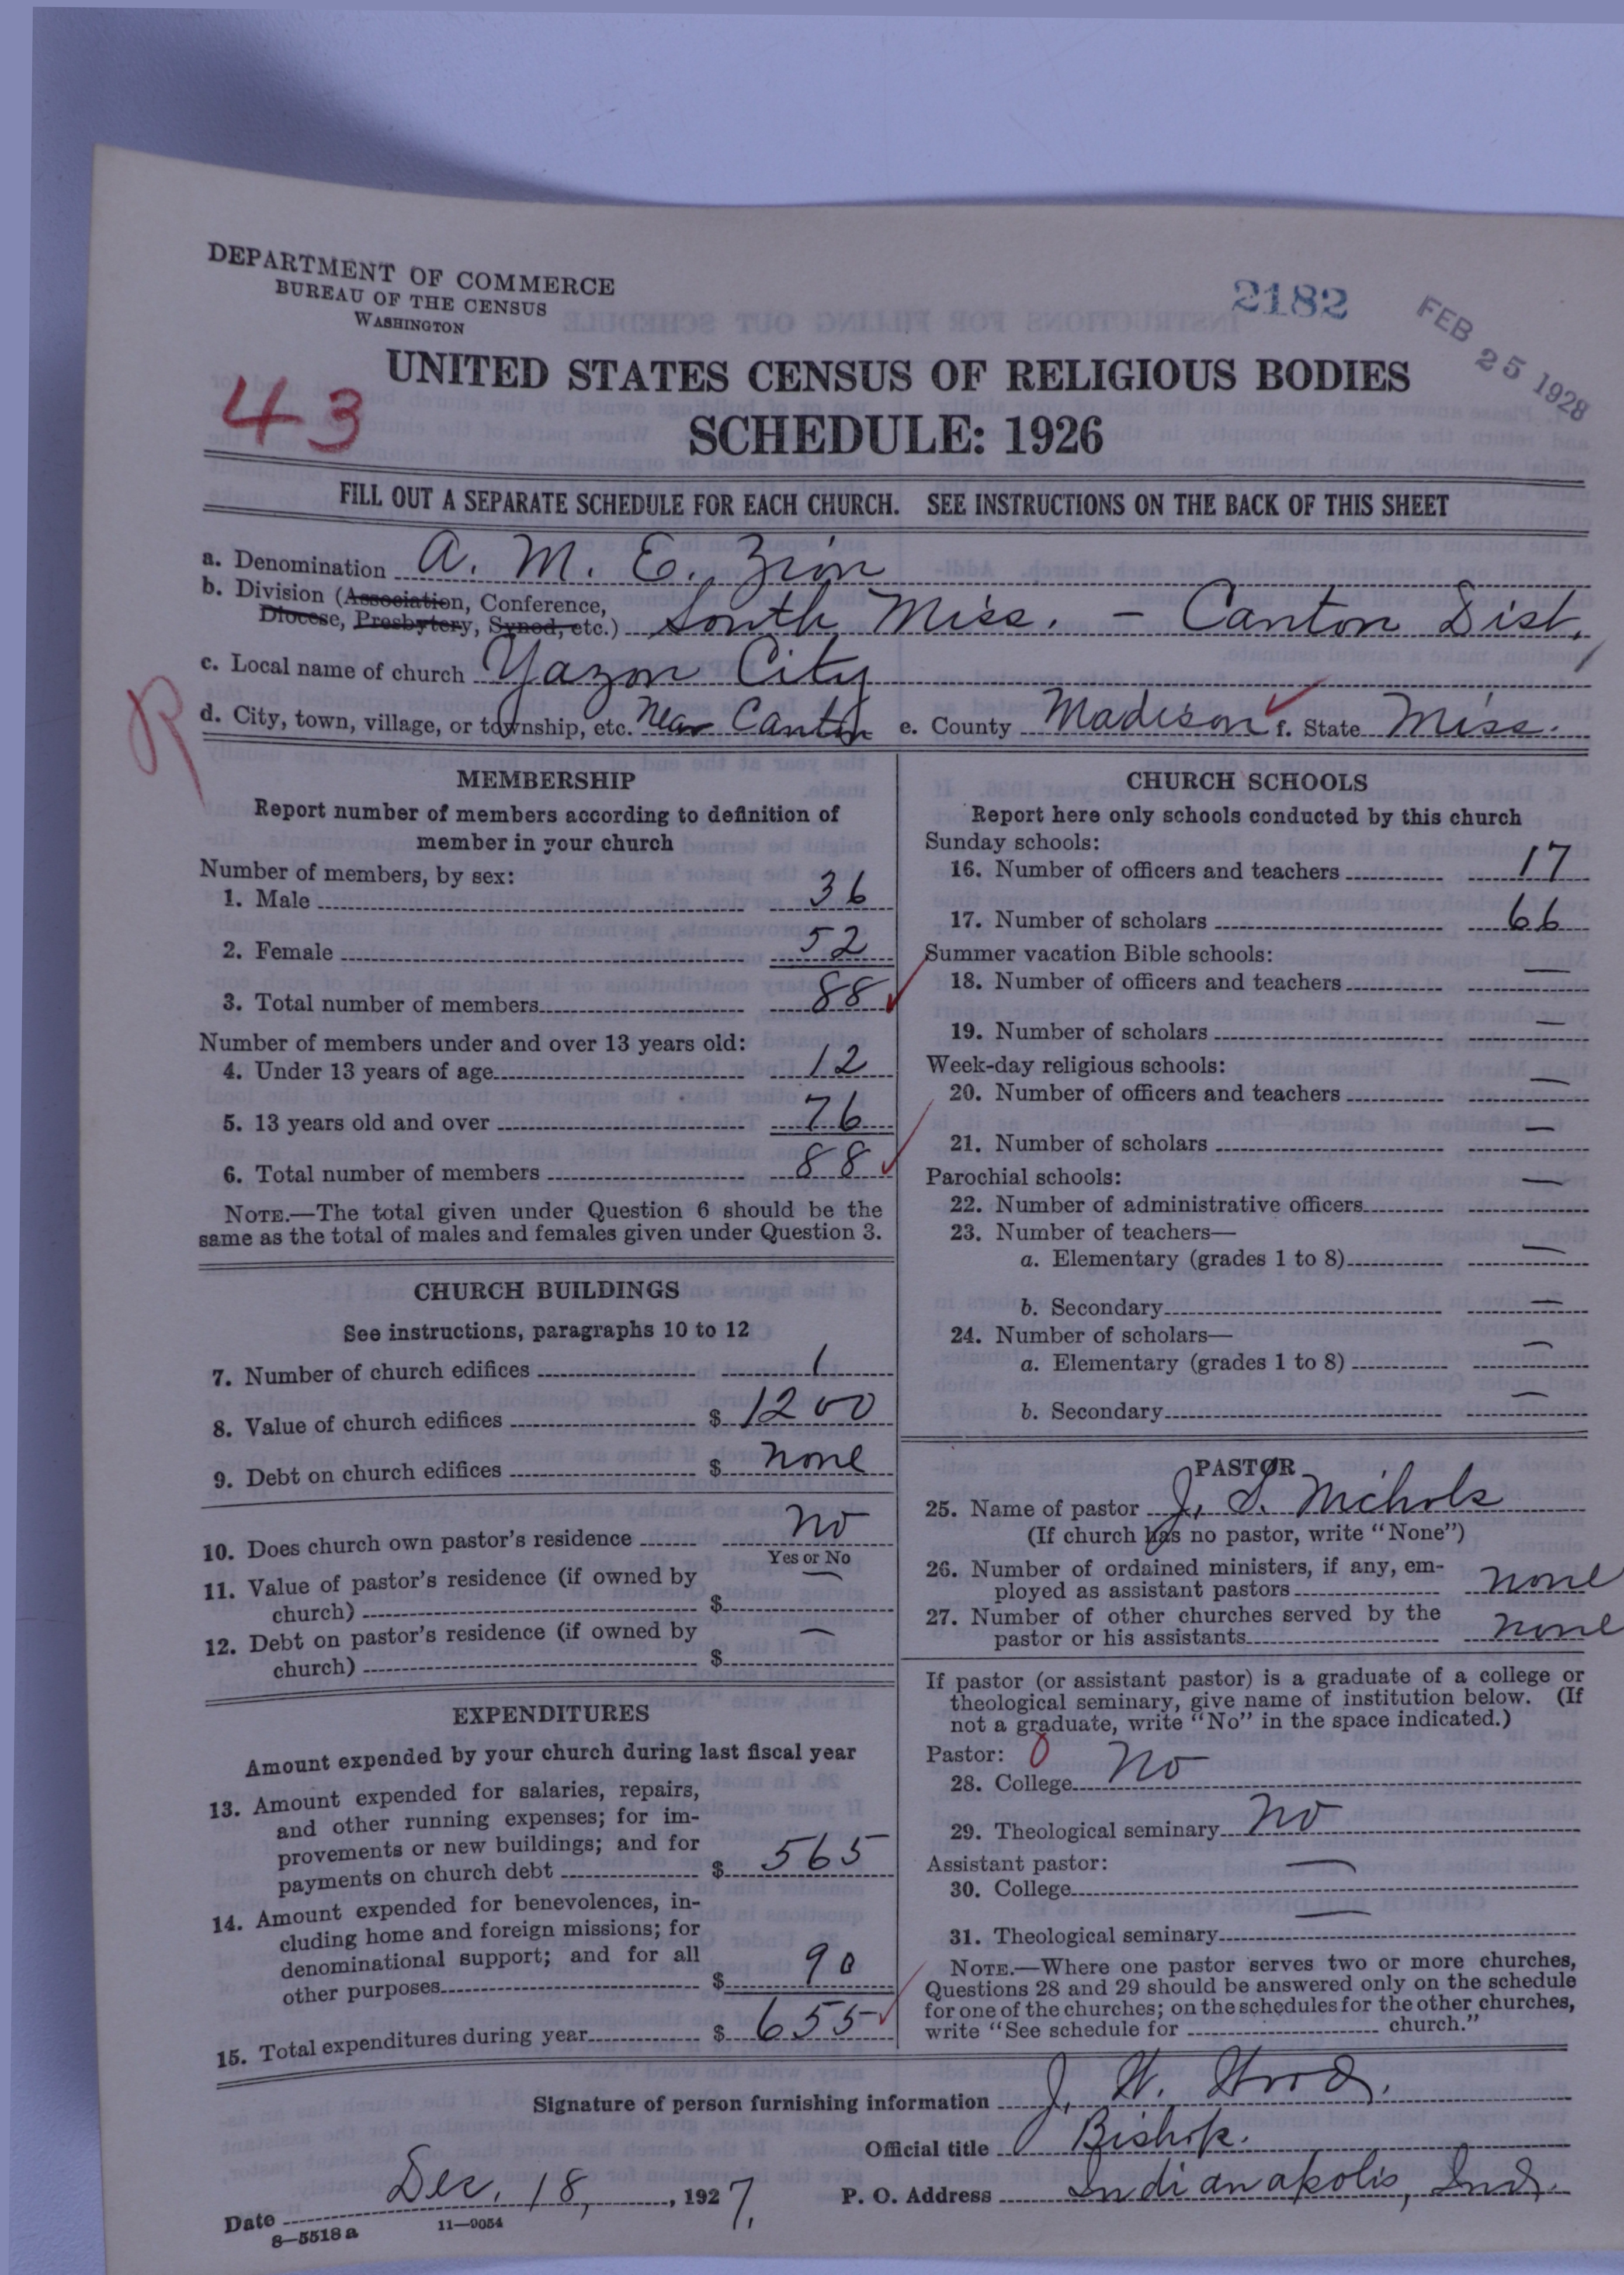 DEPARTMENT OF COMMERCE
BUREAU OF THE CENSUS
WASHINGTON
2182
FEB 25 1928
UNITED STATES CENSUS OF RELIGIOUS BODIES
43
SCHEDULE: 1926
FILL OUT A SEPARATE SCHEDULE FOR EACH CHURCH. SEE INSTRUCTIONS ON THE BACK OF THIS SHEET
a. Denomination A. M. E. Zion
b. Division (Association, Conference,
Diocese, Presbytery, Synod, etc.) South Miss. - Canton Dist.
c. Local name of church Yazoo City
R
d. City, town, village, or township, etc. Near Canton e. County Madison f. State Miss.
MEMBERSHIP
Report number of members according to definition of
member in your church
Number of members, by sex:
1. Male 36
2. Female 52
3. Total number of members 88
Number of members under and over 13 years old:
4. Under 13 years of age 12
5. 13 years old and over 76
6. Total number of members 88
NOTE.—The total given under Question 6 should be the
same as the total of males and females given under Question 3.
CHURCH BUILDINGS
See instructions, paragraphs 10 to 12
7. Number of church edifices 1
8. Value of church edifices $ 1200
9. Debt on church edifices $ none
10. Does church own pastor's residence no
Yes or No
11. Value of pastor's residence (if owned by
church) $ —
12. Debt on pastor's residence (if owned by
church) $ —
EXPENDITURES
Amount expended by your church during last fiscal year
13. Amount expended for salaries, repairs,
and other running expenses; for im-
provements or new buildings; and for
payments on church debt $ 565
14. Amount expended for benevolences, in-
cluding home and foreign missions; for
denominational support; and for all
other purposes $ 90
15. Total expenditures during year $ 655
CHURCH SCHOOLS
Report here only schools conducted by this church
Sunday schools:
16. Number of officers and teachers 17
17. Number of scholars 66
Summer vacation Bible schools:
18. Number of officers and teachers —
19. Number of scholars —
Week-day religious schools:
20. Number of officers and teachers —
21. Number of scholars —
Parochial schools:
22. Number of administrative officers —
23. Number of teachers—
a. Elementary (grades 1 to 8) —
b. Secondary —
24. Number of scholars—
a. Elementary (grades 1 to 8) —
b. Secondary —
PASTOR
25. Name of pastor J. S. Nichols
(If church has no pastor, write "None")
26. Number of ordained ministers, if any, em-
ployed as assistant pastors none
27. Number of other churches served by the
pastor or his assistants none
If pastor (or assistant pastor) is a graduate of a college or
theological seminary, give name of institution below. (If
not a graduate, write "No" in the space indicated.)
Pastor: 0
28. College No
29. Theological seminary No
Assistant pastor:
30. College —
31. Theological seminary —
NOTE.—Where one pastor serves two or more churches,
Questions 28 and 29 should be answered only on the schedule
for one of the churches; on the schedules for the other churches,
write "See schedule for church."
Signature of person furnishing information J. W. Wood.
Official title Bishop.
Date Dec. 18, 1927. P. O. Address Indianapolis, Ind.
8—5518 a 11—9054